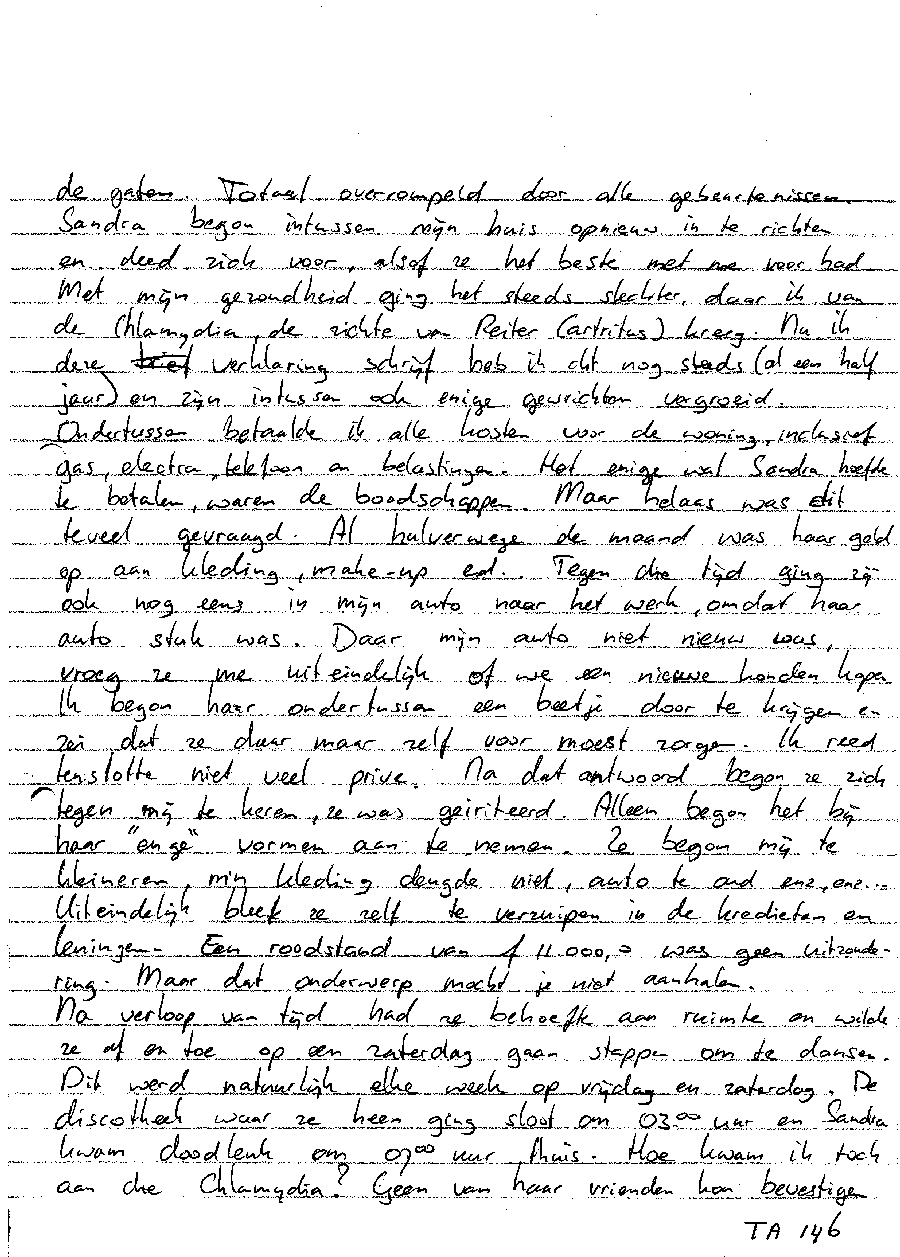 de gaten. Totaal overrompeld door alle gebeurtenissen.
Sandra begon intussen mijn huis opnieuw in te richten
en deed zich voor, alsof ze het beste met me voor had
Met mijn gezondheid ging het steeds slechter, daar ik van
de Chlamydia, de ziekte van Reiter (artritus) kreeg. Nu ik
deze brief verklaring schrijf heb ik dit nog steeds (al een half
jaar) en zijn intussen ook enige gewrichten vergroeid.
Ondertussen betaalde ik alle kosten voor de woning, inclusief
gas, electra, telefoon en belastingen. Het enige wat Sandra hoefde
te betalen, waren de boodschappen. Maar helaas was dit
teveel gevraagd. Al halverwege de maand was haar geld
op aan kleding, make-up ed.. Tegen die tijd ging zij
ook nog eens in mijn auto naar het werk, omdat haar
auto stuk was. Daar mijn auto niet nieuw was,
vroeg ze me uiteindelijk of we een nieuwe konden kopen
Ik begon haar ondertussen een beetje door te krijgen en
zei dat ze daar maar zelf voor moest zorgen. Ik reed
tenslotte niet veel prive. Na dat antwoord begon ze zich
tegen mij te keren, ze was geïriteerd. Alleen begon het bij
haar "enge" vormen aan te nemen. Ze begon mij te
kleineren, mijn kleding deugde niet, auto te oud enz, enz...
Uiteindelijk bleek ze zelf te verzuipen in de kredieten en
leningen. Een roodstand van f 11.000,= was geen uitzonde-
ring. Maar dat onderwerp mocht je niet aanhalen.
Na verloop van tijd had ze behoefte aan ruimte en wilde
ze af en toe op een zaterdag gaan stappen om te dansen.
Dit werd natuurlijk elke week op vrijdag en zaterdag. De
discotheek waar ze heen ging sloot om 03.00 uur en Sandra
kwam doodleuk om 0700 uur thuis. Hoe kwam ik toch
aan die Chlamydia? Geen van haar vrienden kon bevestigen
TA 146